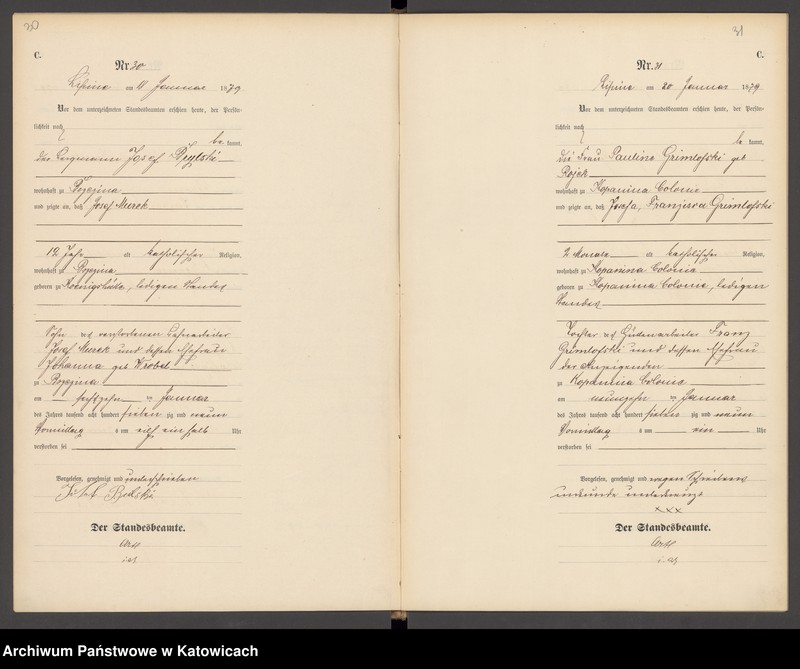 30
C.
Nr. 30
Lipine am 11 Januar 1879
Vor dem unterzeichneten Standesbeamten erschien heute, der Persön-
lichkeit nach
be kannt,
der Bergmann Josef
wohnhaft zu
und zeigte an, daß Josef Murek
12 Jahr alt katholischer Religion,
wohnhaft zu
geboren zu Koenigshütte, ledigen Standes
Sohn des verstorbenen
Josef Murek und dessen Ehefrau
Johanna geb Wrobel
zu
am sechszehn ten Januar
des Jahres tausend acht hundert sieben zig und neun
Vormittag s um elf ein halb Uhr
verstorben sei
Vorgelesen, genehmigt und unterschrieben
Der Standesbeamte.
31
C.
Nr. 31
Lipine am 20 Januar 1879
Vor dem unterzeichneten Standesbeamten erschien heute, der Persön-
lichkeit nach
be kannt,
die Frau Pauline Grimlofski geb
Rojek
wohnhaft zu Kopanina Colonie
und zeigte an, daß Josefa, Franziska Grimlofski
2 Monate alt katholischer Religion,
wohnhaft zu Kopanina Colonie
geboren zu Kopanina Colonie, ledigen
Standes
Tochter des Hüttenarbeiter Franz
Grimlofski und dessen Ehefrau
der Anzeigenden
zu Kopanina Colonie
am neunzehn ten Januar
des Jahres tausend acht hundert sieben zig und neun
Vormittag s um ein Uhr
verstorben sei
Vorgelesen, genehmigt und wegen Schreibens
xxx
Der Standesbeamte.
Archiwum Państwowe w Katowicach